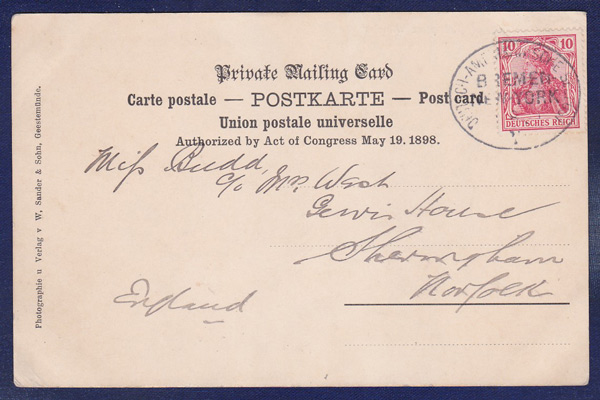 10 10
DEUTSCHES REICH
BREMEN
NEW YORK
Private Mailing Card
Carte postale — POSTKARTE — Post card
Union postale universelle
Authorized by Act of Congress May 19. 1898.
Miss Budd
c/o Mrs West
House
Sheringham
Norfolk
England
Photographie u Verlag v W. Sander & Sohn, Geestemünde.